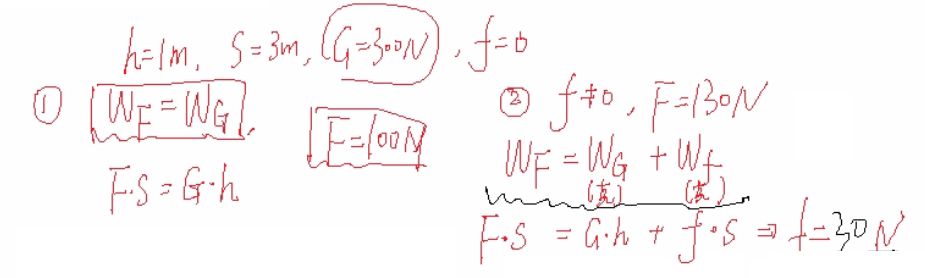 h=1m, S=3m, G=300N, f=0
① W_F=W_G
F=100N
F·S=G·h
② f≠0, F=130N
W_F=W_G+W_f
(克) (克)
F·S=G·h+f·S⇒f=30N